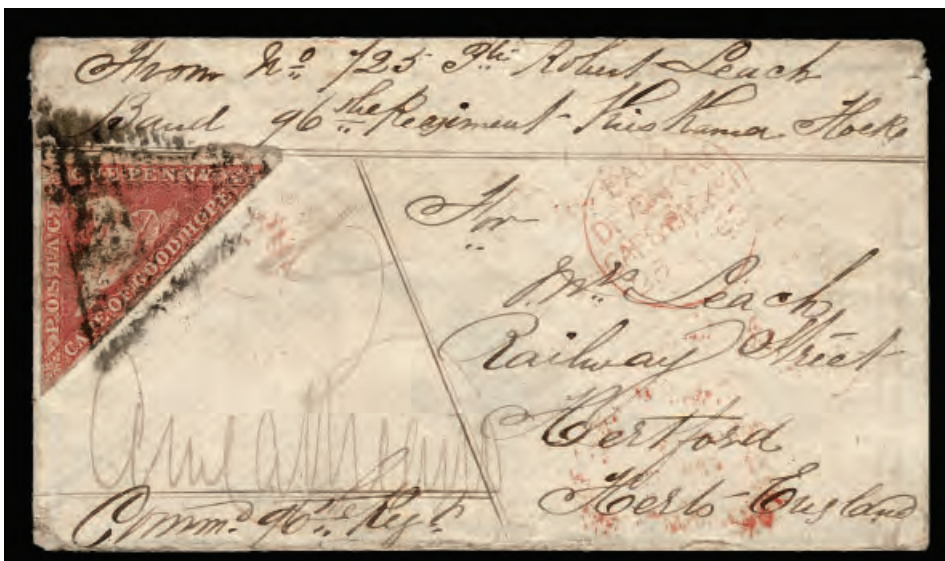 From No. 725 Pte Robert Leach
Band 96 the Regiment
ONE PENNY
POSTAGE
CAPE OF GOOD HOPE
For
Mrs Leach
Railway Street
Hertford
Herts England
Commd 96 the Regt